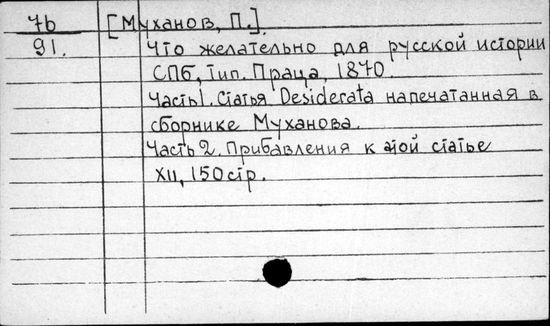 7б [Муханов, П.].
91. Что желательно для русской истории
СПб, тип. Праца, 1870.
Часть 1. Статья Desiderata напечатанная в
сборнике Муханова.
Часть 2. Прибавления к этой статье
XII, 150 стр.